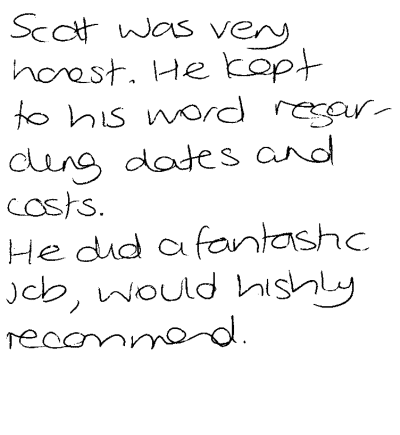 Scott was very
honest. He kept
to his word regar-
ding dates and
costs.
He did a fantastic
job, would highly
recommend.